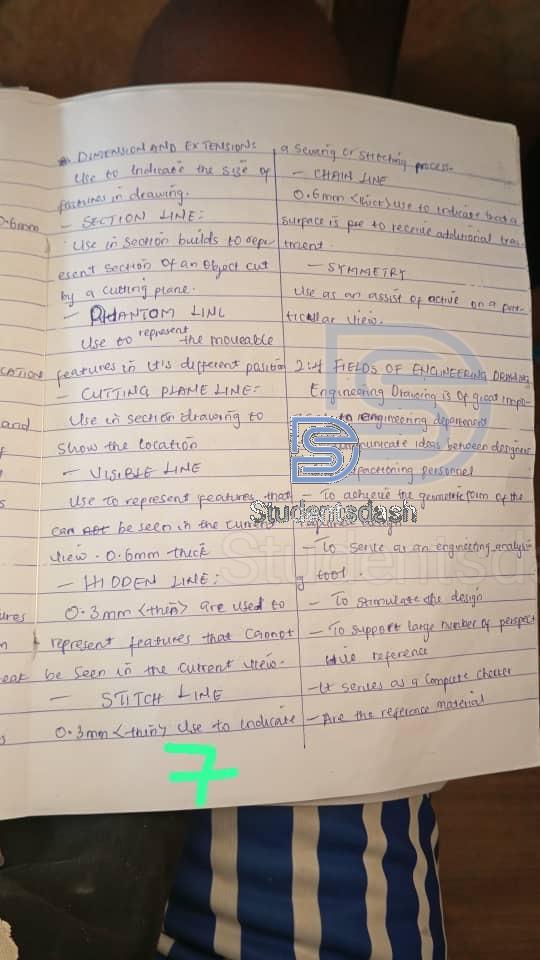 DIMENSION AND EXTENSION:
Use to Indicate the size of
features in drawing.
- SECTION LINE:
Use in section builds to repr
esent section of an object cut
by a cutting plane.
- PHANTOM LINE
Use to represent the moveable
features in it's different position
- CUTTING PLANE LINE:
Use in section drawing to
show the location
- VISIBLE LINE
Use to represent features that
can be seen in the current
view. 0.6mm thick
- HIDDEN LINE:
0.3mm <thin> are used to
represent features that cannot
be seen in the current view.
- STITCH LINE
0.3mm <thin> use to indicate
a sewing or stitching process.
- CHAIN LINE
0.6mm <thick> use to indicate that a
surface is to receive additional trea
tment.
- SYMMETRY
Use as an assist of active on a par-
ticular view.
2:4 FIELDS OF ENGINEERING DRAWING
Engineering Drawing is of great impo-
to engineering department
ideas between designers
personnel
- To achieve the geometric form of the
- To serve as an engineering analysi-
g tool.
- To stimulate the design
- To support large number of perspect
reference
- It serves as a complete checker
- Are the reference material
0.6mm
CATION
and
ures
eat
Studentsdash
Studentsda
7